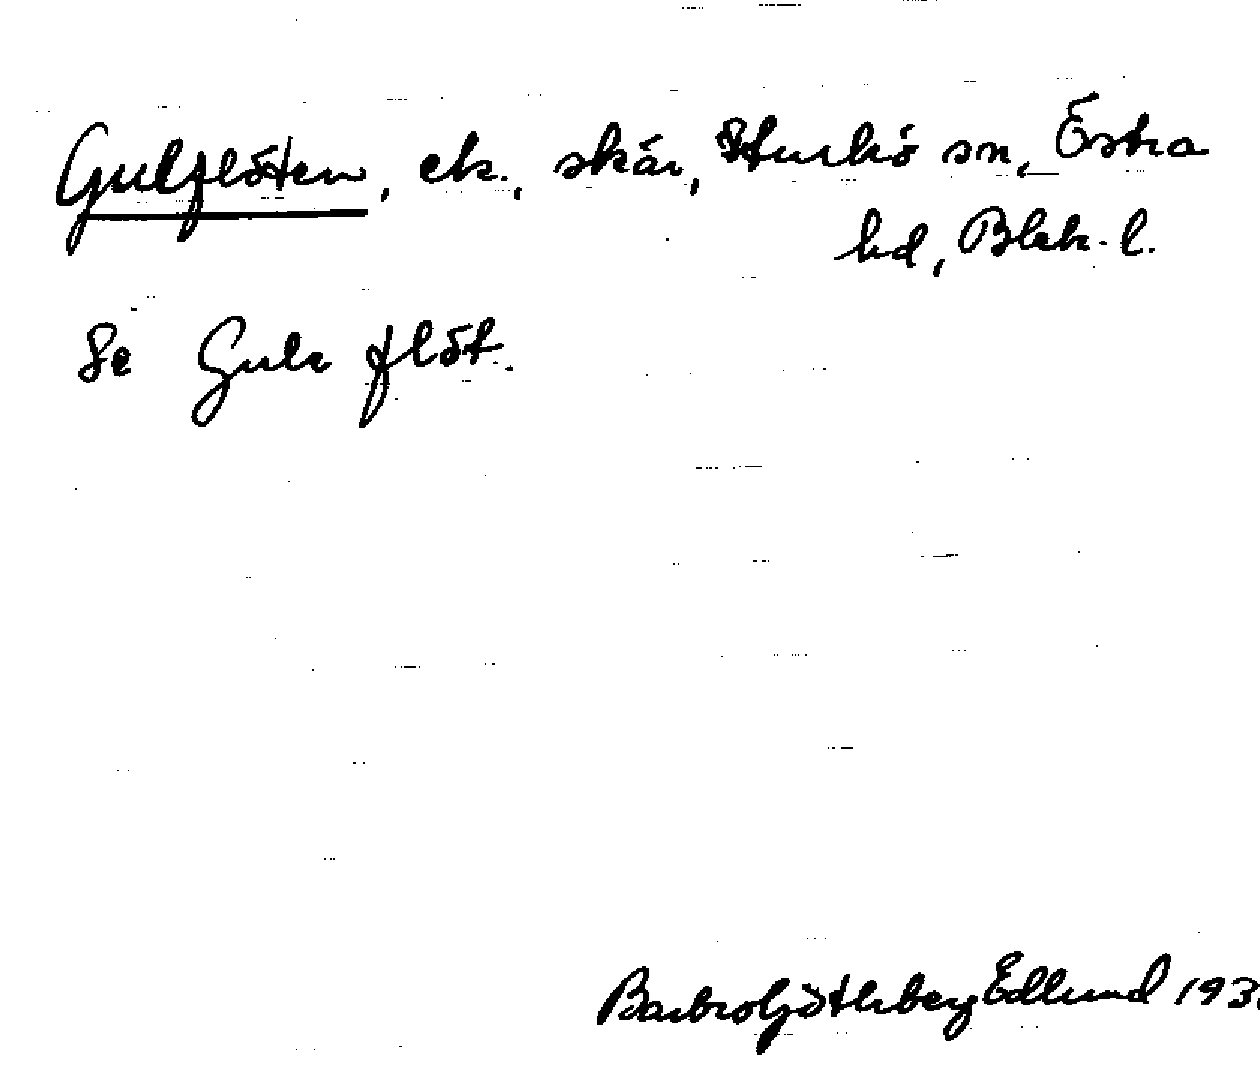 Gulflöten, ek., skär, Sturkö sn, Östra
hd, Blek. l.
Se Gula flöt.
Barbro Götherberg Edlund 193